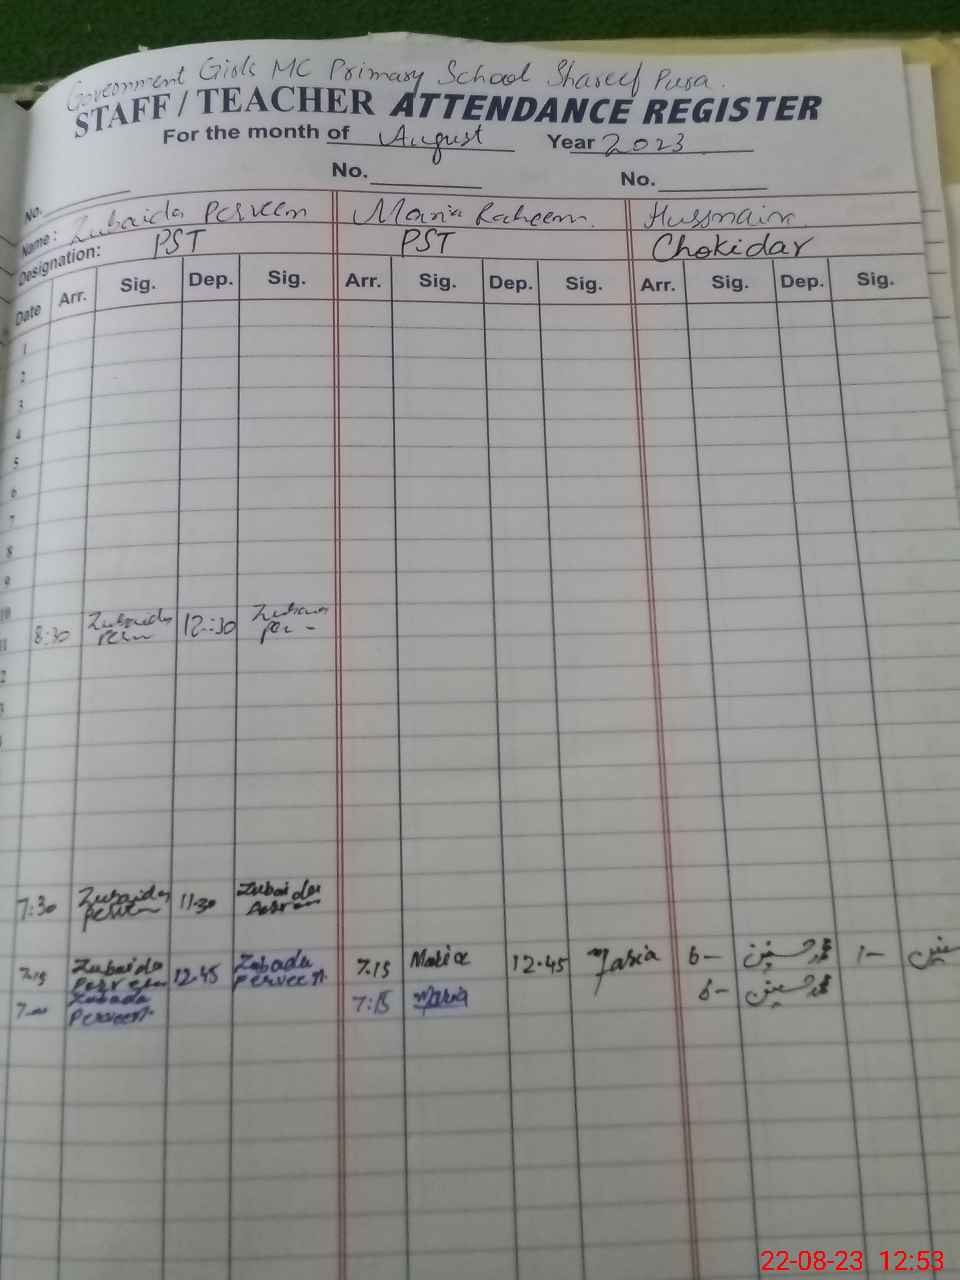 Government Girls MC Primary School Shareef Pura.
STAFF / TEACHER ATTENDANCE REGISTER
For the month of August Year 2023
No. No. No.
Name: Zubaida Perveen Maria Raheem Hussnain
Designation: PST PST Chokidar
Date Arr. Sig. Dep. Sig. Arr. Sig. Dep. Sig. Arr. Sig. Dep. Sig.
1
2
3
4
5
6
7
8
9
10
11 8:30 Zubaida 12:30
2
3
7:30 Zubaida 11-30 Zubaida
7.15 Zubaida 12.45 Zobada Perveen 7.15 Maria 12.45 Maria 6- 1-
7- Zobada Perveen 7:15 Maria 6-
22-08-23 12:53